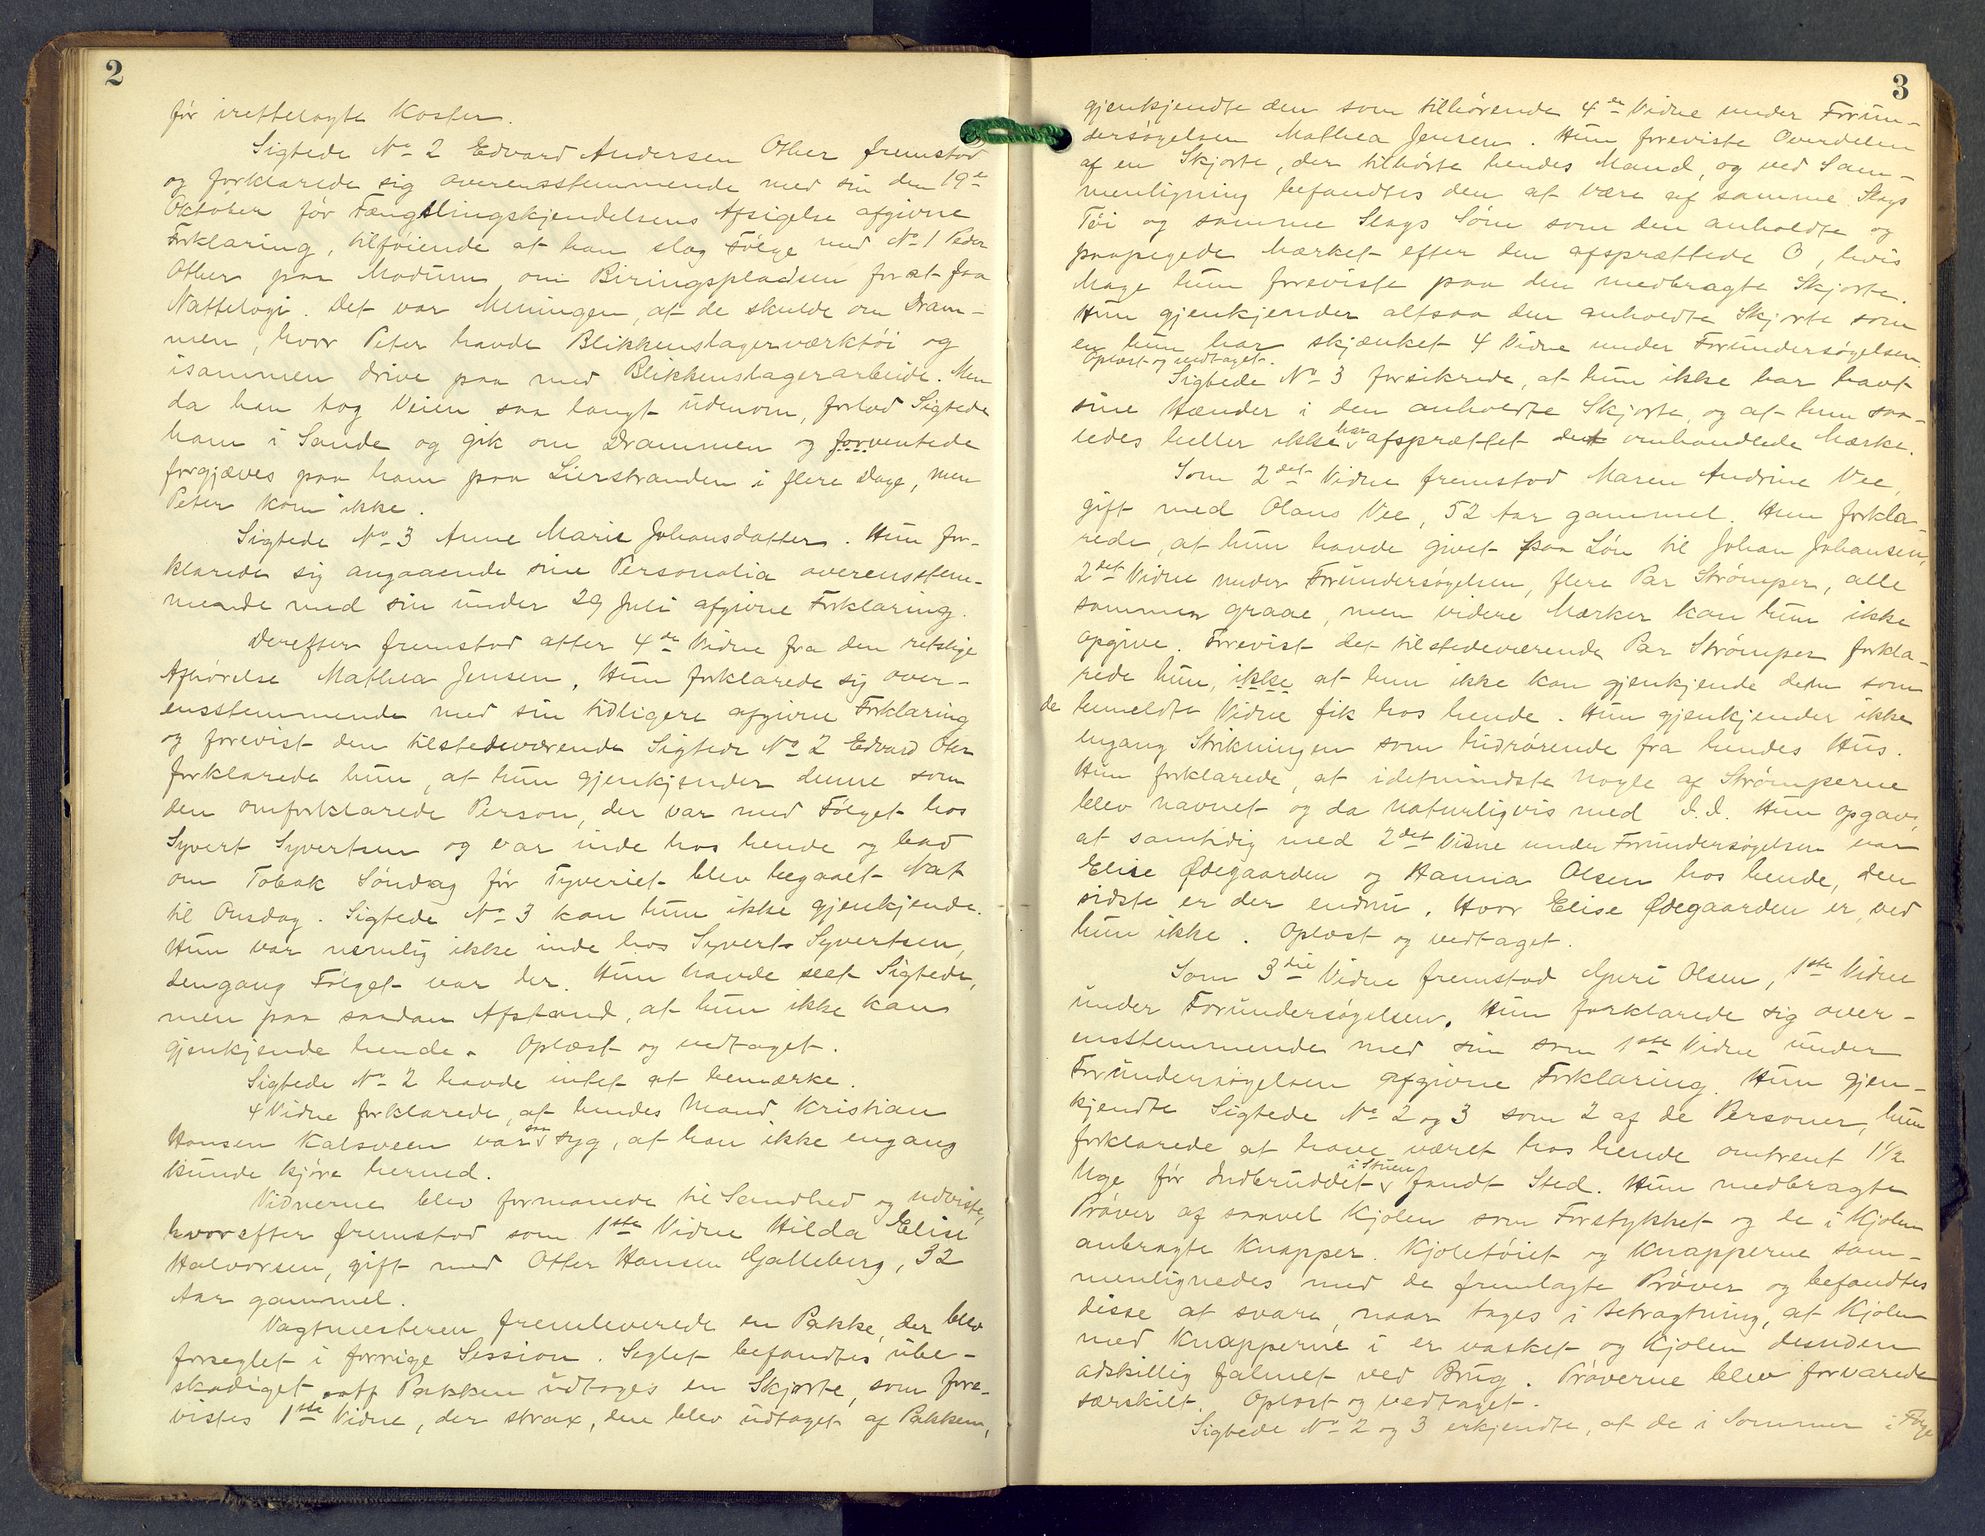 2
før irettelagte Koster.
Sigtede No 2 Edvard Andersen Other fremstod
og forklarede sig overensstemmende med sin den 19de
Oktober før Fængslingskjendelsens Afsigelse afgivne
Forklaring, tilføiende at han slog Følge med No 1 Peder
Other paa Modum om Biringspladsen for at faa
Nattelogi. Det var Meningen, at de skulde om Dram-
men, hvor Peter havde Blikkenslagerværktøi og
isammen drive paa med Blikkenslagerarbeide. Men
da han tog Veien saa langt udenom, forlod Sigtede
ham i Sande og gik om Drammen og forventede
forgjæves paa ham paa Lierstranden i flere Dage, men
Peter kom ikke.
Sigtede No 3 Anne Marie Johansdatter. Hun for-
klarede sig angaaende sine Personalia overensstem-
mende med sin under 29 Juli afgivne Forklaring.
Derefter fremstod atter 4de Vidne fra den retslige
Afhørelse Mathea Jensen. Hun forklarede sig over-
ensstemmende med sin tidligere afgivne Forklaring
og forevist den tilstedeværende Sigtede No 2 Edvard Oter
forklarede hun, at hun gjenkjender denne som
den omforklarede Person, der var med Følget hos
Syvert Syvertsen og var inde hos hende og bad
om Tobak Søndag før Tyveriet blev begaaet Nat
til Onsdag. Sigtede No 3 kan hun ikke gjenkjende.
Hun var nemlig ikke inde hos Syvert Syvertsen,
dengang Følget var der. Hun havde seet Sigtede,
men paa saadan Afstand, at hun ikke kan
gjenkjende hende. Oplæst og vedtaget.
Sigtede No 2 havde intet at bemærke.
4 Vidne forklarede, at hendes Mand Kristian
Hansen Kalsveen var saa syg, at han ikke engang
kunde kjøre herned.
Vidnerne blev formanede til Sandhed og udviste,
hvorefter fremstod som 1ste Vidne Hilda Elise
Halvorsen, gift med Otter Hansen Galleberg, 32
Aar gammel.
Vagtmesteren fremleverede en Pakke, der blev
forseglet i forrige Session. Seglet befandtes ube-
skadiget. Pakken udtoges en Skjorte, som fore-
vistes 1ste Vidne, der strax, den blev udtaget af Pakken,
3
gjenkjendte den som tilhørende 4de Vidne under Forun-
dersøgelsen Mathea Jensen. Hun foreviste Overdelen
af en Skjorte, der tilhørte hendes Mand, og ved Sam-
menligning befandtes den at være af samme Slags
Tøi og samme Slags Søm som den anholdte og
paapegede Mærket efter den afsprættede O, hvis
Mage hun foreviste paa den medbragte Skjorte.
Hun gjenkjender altsaa den anholdte Skjorte som
en hun har skjænket 4 Vidne under Forundersøgelsen.
Oplæst og vedtaget.
Sigtede No 3 forsikrede, at hun ikke har havt
sine Hænder i den anholdte Skjorte, og at hun saa-
ledes heller ikke har afsprættet det omhandlede Mærke.
Som 2det Vidne fremstod Maren Andrine Vee,
gift med Olaus Vee, 52 Aar gammel. Hun forkla-
rede, at hun havde givet paa Løn til Johan Johansen,
2det Vidne under Forundersøgelsen, flere Par Strømper, alle
sammen graae, men videre Mærker kan hun ikke
opgive. Forevist det tilstedeværende Par Strømper forkla-
rede hun, ikke at hun ikke kan gjenkjende dem som
de bemeldte Vidne fik hos hende. Hun gjenkjender ikke
engang Strikningen som hidrørende fra hendes Hus.
Hun forklarede, at idetmindste nogle af Strømperne
blev navnet og da naturligvis med J.J. Hun opgav,
at samtidig med 2det Vidne under Forundersøgelsen var
Elise Ødegaarden og Hanna Olsen hos hende, den
sidste er der endnu. Hvor Elise Ødegaarden er, ved
hun ikke. Oplæst og vedtaget.
Som 3die Vidne fremstod Guri Olsen, 1ste Vidne
under Forundersøgelsen. Hun forklarede sig over-
ensstemmende med sin som 1ste Vidne under
Forundersøgelsen afgivne Forklaring. Hun gjen-
kjendte Sigtede No 2 og 3 som 2 af de Personer, hun
forklarede at have været hos hende omtrent 1½
Uge før Indbruddet i Stuen fandt Sted. Hun medbragte
Prøver af saavel Kjolen som Forstykket og de i Kjolen
anbragte Knapper. Kjoletøiet og Knapperne sam-
menlignedes med de fremlagte Prøver og befandtes
disse at svare, naar tages i Betragtning, at Kjolen
med Knapperne i er vasket og Kjolen desuden
adskillig falmet ved Brug. Prøverne blev forvarede
særskilt. Oplæst og vedtaget.
Sigtede No 2 og 3 erkjendte, at de i Sommer i Følge